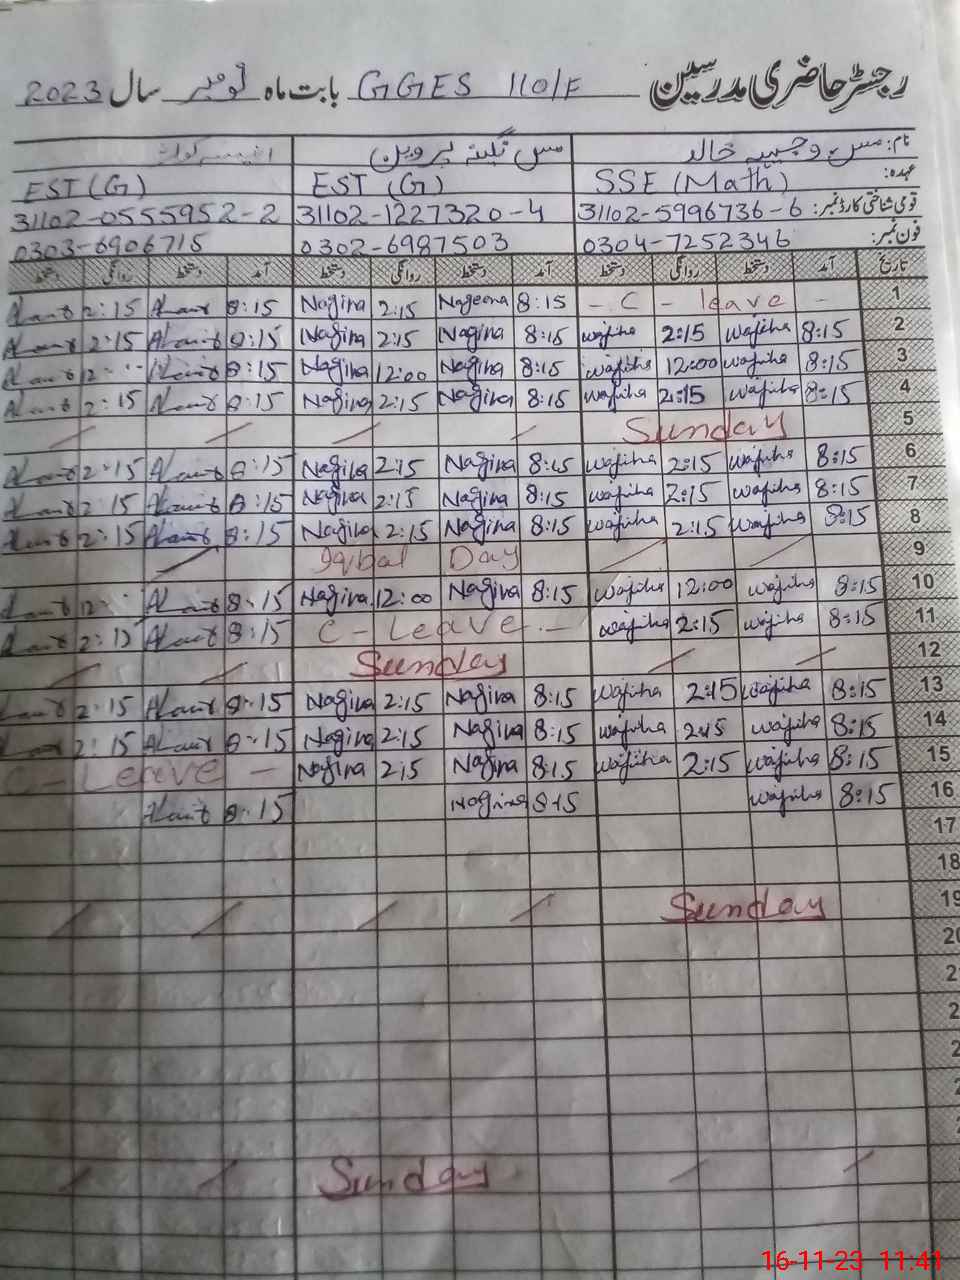 رجسٹر حاضری مدرسین GGES 110/F بابت ماہ نومبر سال 2023
نام: مس وجیہہ خالد مس نگینہ پروین
عہدہ: SSE (Math) EST (G) EST (G)
قومی شناختی کارڈ نمبر: 31102-5996736-6 31102-1227320-4 31102-0555952-2
فون نمبر: 0304-7252346 0302-6987503 0303-6906715
تاریخ آمد دستخط روانگی دستخط آمد دستخط روانگی دستخط آمد دستخط روانگی دستخط
2:15 8:15 Nagina 2:15 Nageena 8:15 - C - leave - 1
2:15 8:15 Nagina 2:15 Nagina 8:15 wajiha 2:15 wajiha 8:15 2
8:15 Nagina 12:00 Nagina 8:15 wajiha 12:00 wajiha 8:15 3
2:15 8:15 Nagina 2:15 Nagina 8:15 wajiha 2:15 wajiha 8:15 4
Sunday 5
2:15 8:15 Nagina 2:15 Nagina 8:15 wajiha 2:15 wajiha 8:15 6
2:15 8:15 Nagina 2:15 Nagina 8:15 wajiha 2:15 wajiha 8:15 7
2:15 8:15 Nagina 2:15 Nagina 8:15 wajiha 2:15 wajiha 8:15 8
Iqbal Day 9
8:15 Nagina 12:00 Nagina 8:15 wajiha 12:00 wajiha 8:15 10
2:15 8:15 C - Leave - wajiha 2:15 wajiha 8:15 11
Sunday 12
2:15 8:15 Nagina 2:15 Nagina 8:15 wajiha 2:15 wajiha 8:15 13
2:15 8:15 Nagina 2:15 Nagina 8:15 wajiha 2:15 wajiha 8:15 14
C - Leave - Nagina 2:15 Nagina 8:15 wajiha 2:15 wajiha 8:15 15
8:15 Nagina 8:15 wajiha 8:15 16
17
18
Sunday 19
20
Sunday
16-11-23 11:41